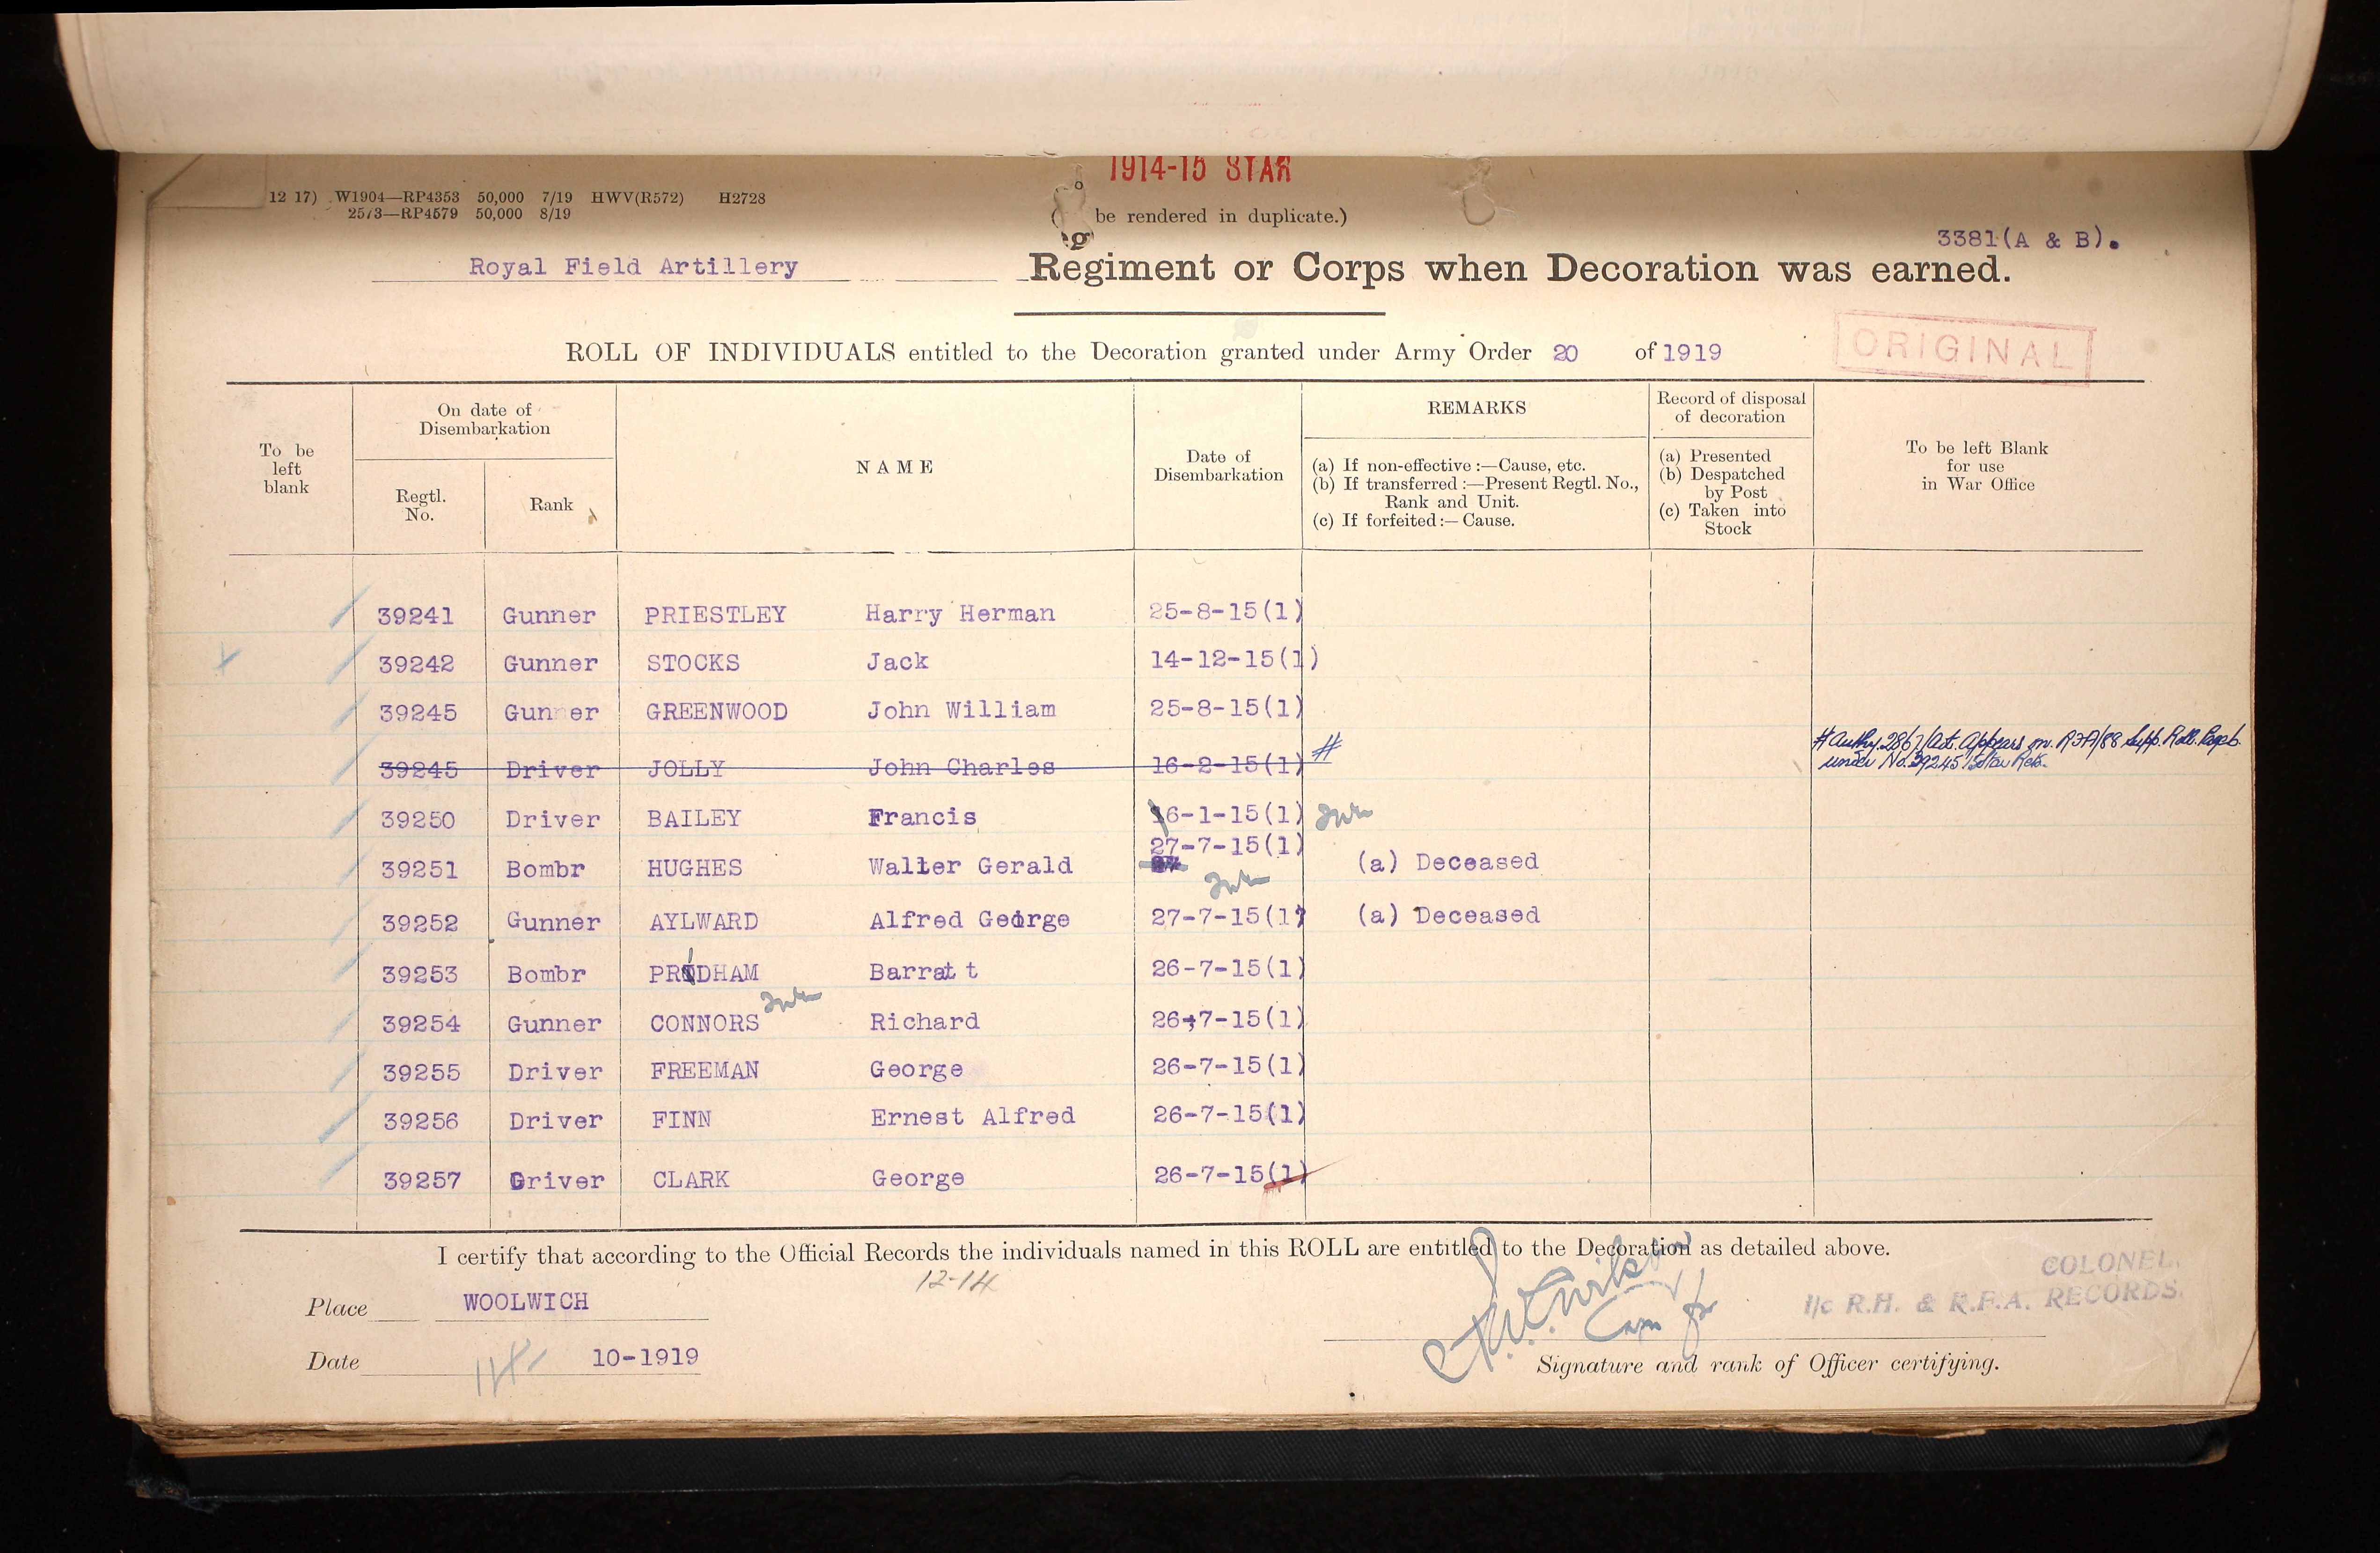 1914-15 STAR
12 17) W1904—RP4353 50,000 7/19 HWV(R572) H2728
2573—RP4579 50,000 8/19
( be rendered in duplicate.)
3381(A & B).
Royal Field Artillery Regiment or Corps when Decoration was earned.
ROLL OF INDIVIDUALS entitled to the Decoration granted under Army Order 20 of 1919
ORIGINAL
To be
left
blank
On date of
Disembarkation
Regtl.
No.
Rank
NAME
Date of
Disembarkation
REMARKS
(a) If non-effective :—Cause, etc.
(b) If transferred :—Present Regtl. No.,
Rank and Unit.
(c) If forfeited :— Cause.
Record of disposal
of decoration
(a) Presented
(b) Despatched
by Post
(c) Taken into
Stock
To be left Blank
for use
in War Office
39241 Gunner PRIESTLEY Harry Herman 25-8-15(1)
39242 Gunner STOCKS Jack 14-12-15(1)
39245 Gunner GREENWOOD John William 25-8-15(1)
39245 Driver JOLLY John Charles 16-2-15(1) #
# Appears on RFA/88 Supp. Roll. Page
under No. 39245
39250 Driver BAILEY Francis 16-1-15(1)
27-7-15(1)
39251 Bombr HUGHES Walter Gerald (a) Deceased
39252 Gunner AYLWARD Alfred George 27-7-15(1) (a) Deceased
39253 Bombr PRIDHAM Barratt 26-7-15(1)
39254 Gunner CONNORS Richard 26-7-15(1)
39255 Driver FREEMAN George 26-7-15(1)
39256 Driver FINN Ernest Alfred 26-7-15(1)
39257 Griver CLARK George 26-7-15(1)
I certify that according to the Official Records the individuals named in this ROLL are entitled to the Decoration as detailed above.
12-14
COLONEL,
I/c R.H. & R.F.A. RECORDS.
Place WOOLWICH
Date 10-1919
Signature and rank of Officer certifying.